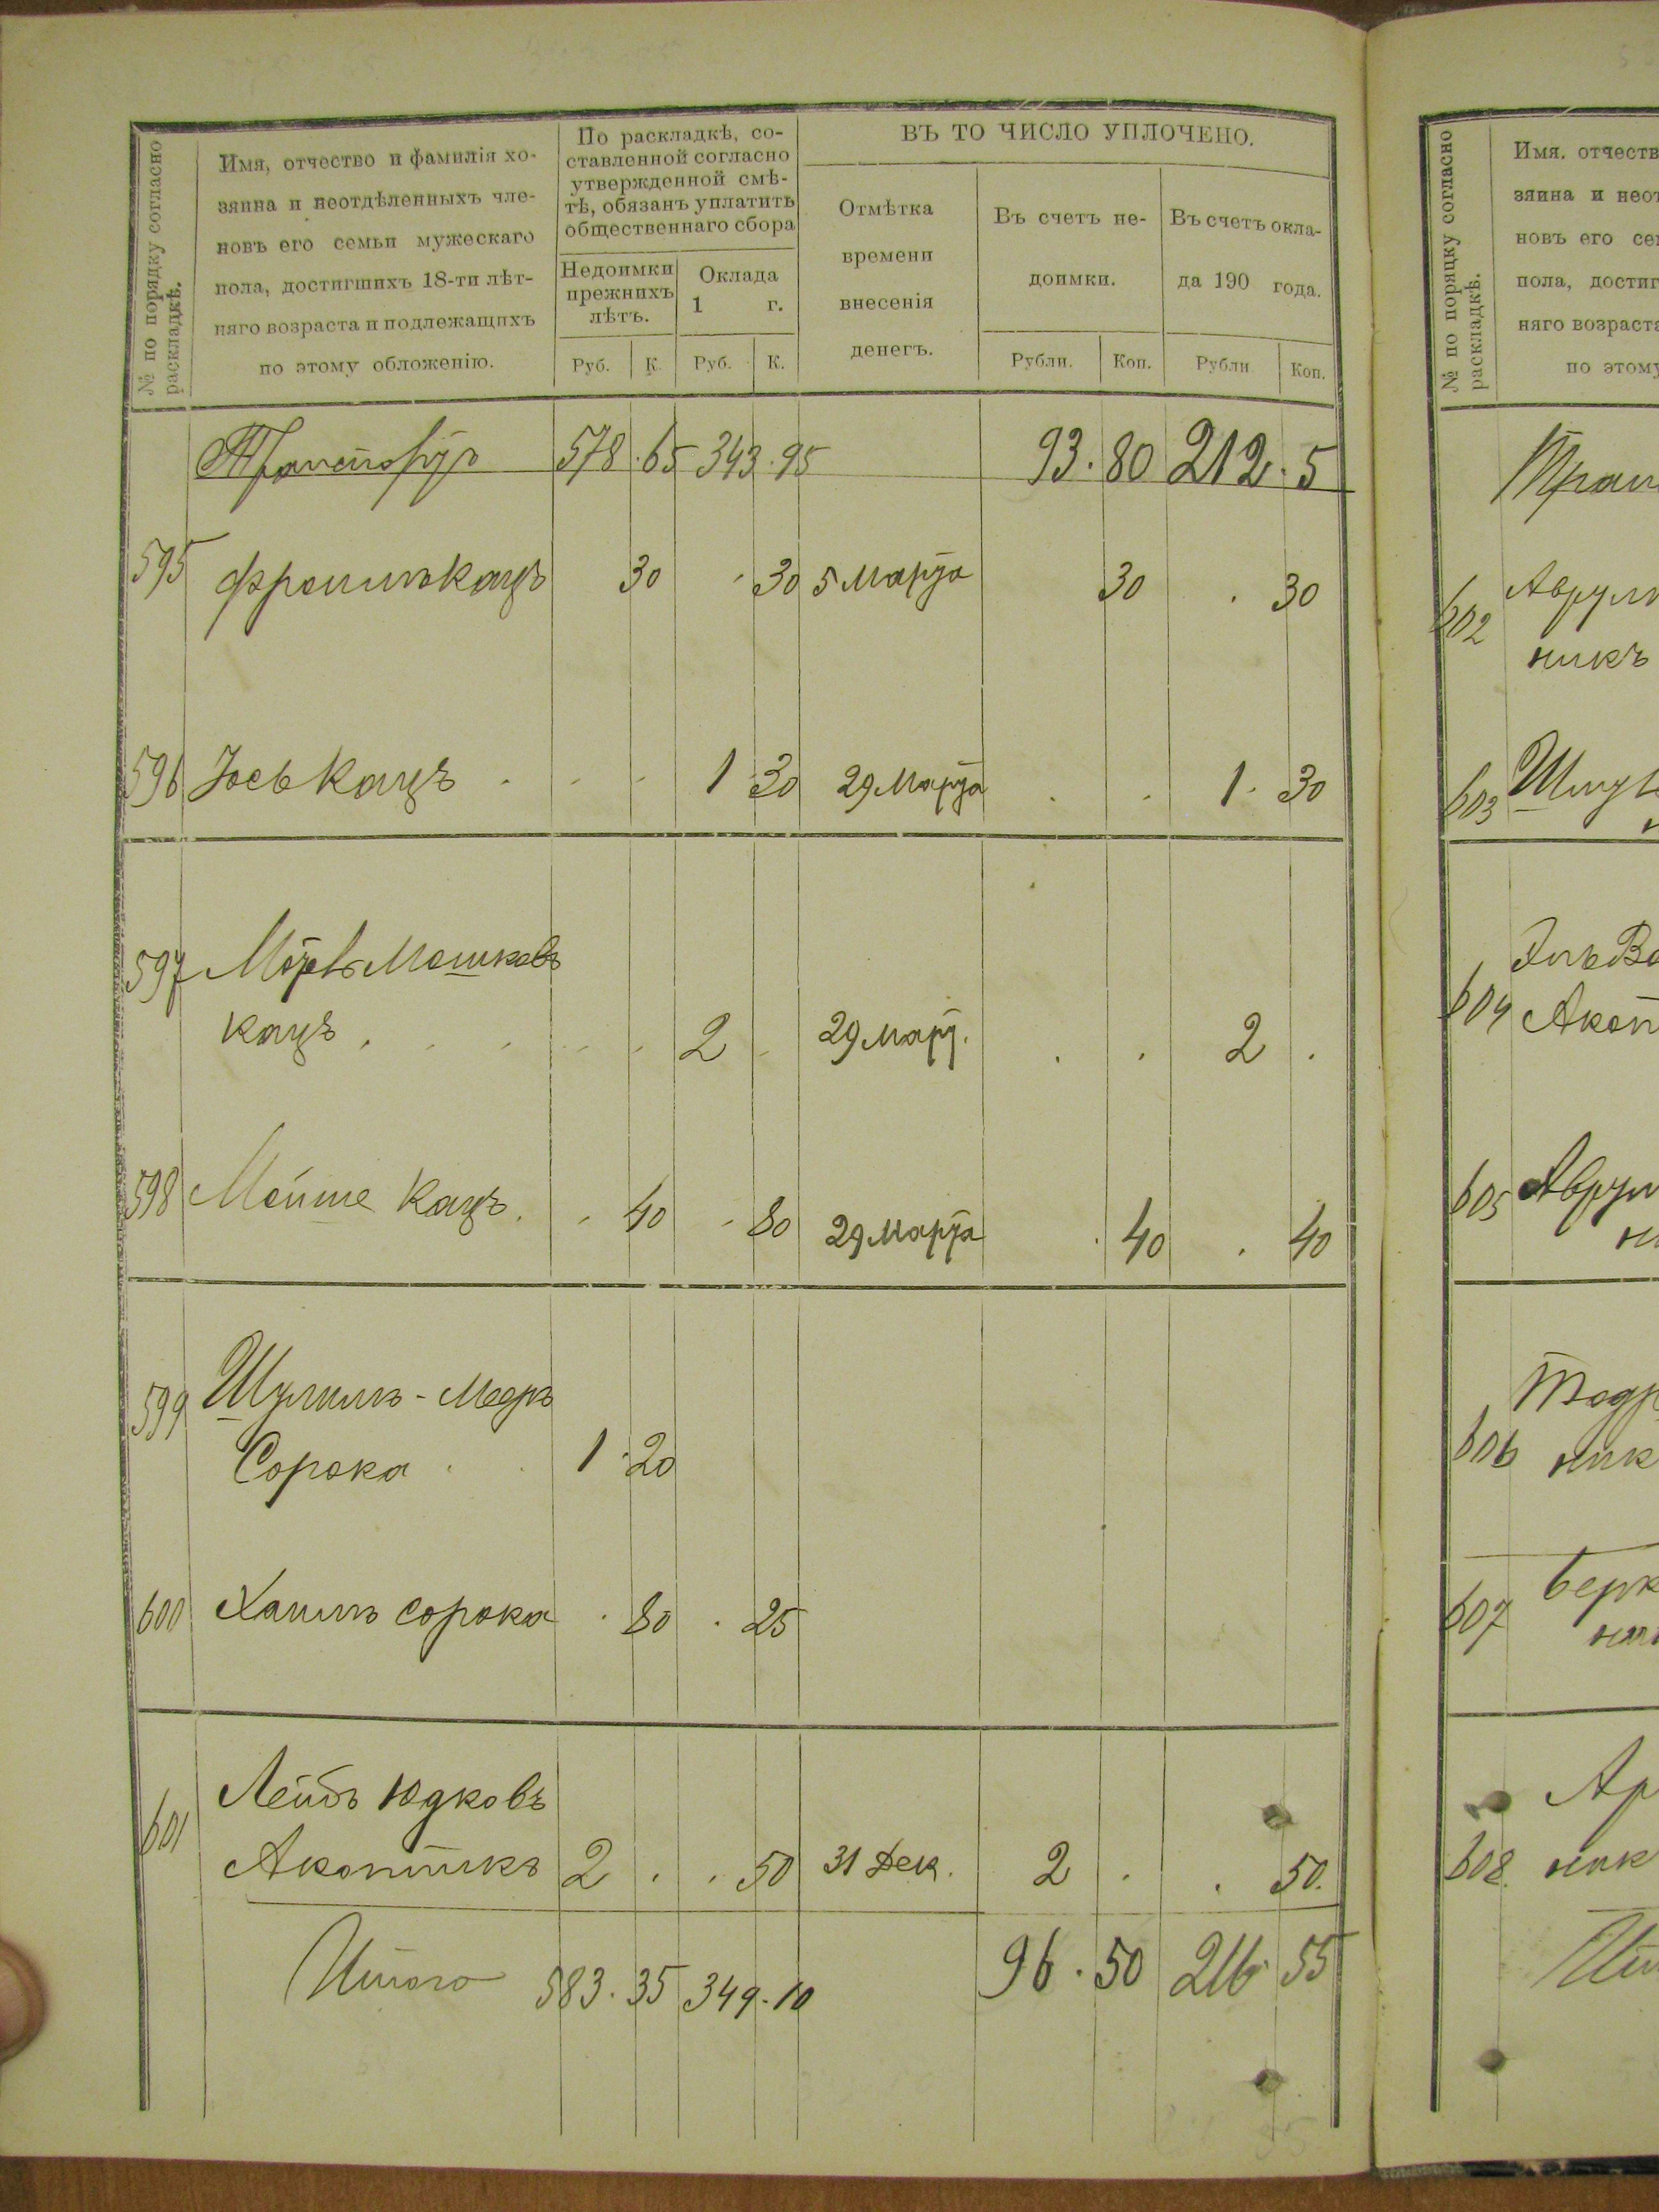 № по порядку согласно
раскладкѣ.
Имя, отчество и фамилія хо-
зяина и неотдѣленныхъ чле-
новъ его семьи мужескаго
пола, достигшихъ 18-ти лѣт-
няго возраста и подлежащихъ
по этому обложенію.
По раскладкѣ, со-
ставленной согласно
утвержденной смѣ-
тѣ, обязанъ уплатить
общественнаго сбора
Недоимки
прежнихъ
лѣтъ.
Оклада
1 г.
Руб. К. Руб. К.
ВЪ ТО ЧИСЛО УПЛОЧЕНО.
Отмѣтка
времени
внесенія
денегъ.
Въ счетъ не-
доимки.
Въ счетъ окла-
да 190 года.
Рубли. Коп. Рубли Коп.
Транспортъ 578 . 65 343 . 95 93 . 80 212 . 5
595 Фроимъ Кацъ 30 30 5 Марта 30 . 30
596 Іось Кацъ . . . 1 30 29 Марта . . 1 . 30
597 Мошковъ
Кацъ . . . . . 2 29 Март. . . 2 .
598 Мойше Кацъ . . 40 . 80 29 Марта . 40 . 40
599 Шулимъ-Мееръ
Сорока . . 1 . 20
600 Хаимъ Сорока . 80 . 25
601 Лейбъ Юдковъ
Акопникъ 2 . . 50 31 Дек. 2 . . 50.
Итого 583 . 35 349 . 10 96 . 50 216 55
№ по порядку согласно
раскладкѣ.
Имя. отчеств
зяина и неот
новъ его се
пола, достиг
няго возраста
по этому
Тран
602 Аврум
никъ
603 Шму
604
Акоп
605 Аврум
606
ник
607 Берк
608 Ар
ник
Ит